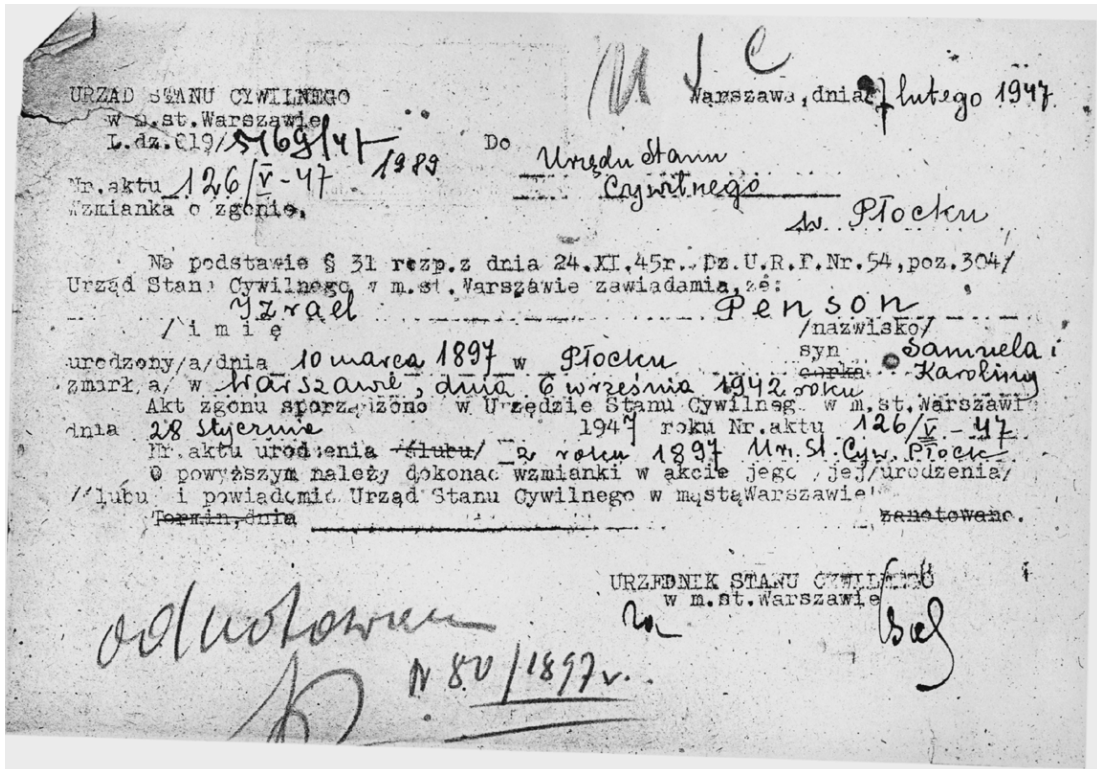 U S C
URZĄD STANU CYWILNEGO
w m.st.Warszawie
Warszawa, dnia 7 lutego 1947.
L.dz.019/5169/47
1989
Do Urzędu Stanu
Cywilnego
w Płocku
Nr.aktu 126/V-47
Wzmianka o zgonie.
Na podstawie § 31 rozp.z dnia 24.XI.45r. Dz.U.R.P.Nr.54,poz.304/
Urząd Stanu Cywilnego w m.st.Warszawie zawiadamia,że:
Izrael Penson
/i m i ę /nazwisko/
urodzony/a/dnia 10 marca 1897 w Płocku syn Samuela i
córka Karoliny
zmarł a/ w Warszawie, dnia 6 września 1942 roku
Akt zgonu sporządzono w Urzędzie Stanu Cywilneg. w m.st.Warszawi
dnia 28 stycznia 1947 roku Nr.aktu 126/V-47
Nr.aktu urodzenia /ślubu/ z roku 1897 Ur. St. Cyw. Płock
O powyższym należy dokonać wzmianki w akcie jego /jej/urodzenia/
/ślubu i powiadomić Urząd Stanu Cywilnego w m.st.Warszawie
Termin,dnia zanotowano.
URZĘDNIK STANU CYWILNEGO
w m.st.Warszawie
za
odnotowano
N 80/1897 r.